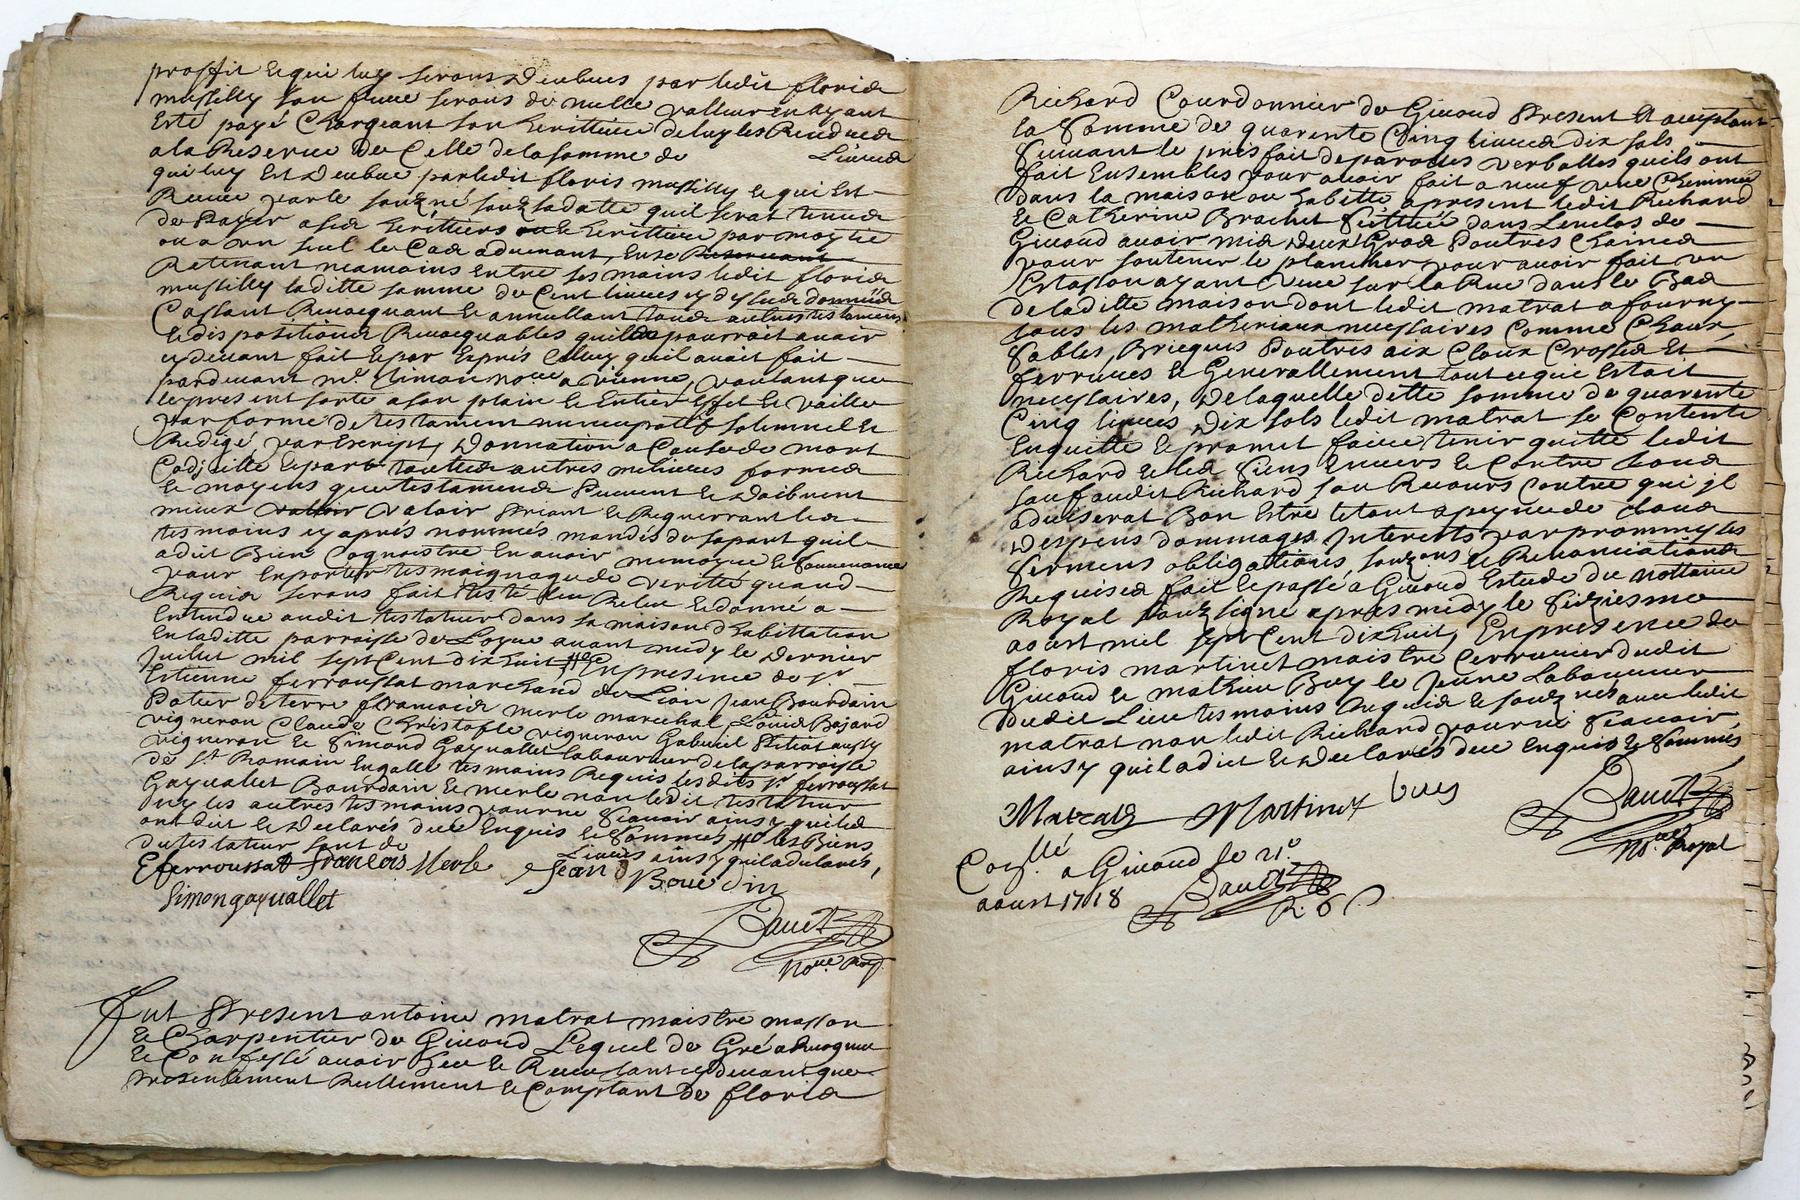 proffit et qui luy seront deubues par ledit floris
mussilly son frere seront de nulle valleur en ayant
Esté payé Chargeant son herittiere de luy les Rendues
a la Reserve de Celle de la somme de livres
qui luy Est deubue par ledit floris mussilly et qui Est
Receue par le souzné souz sa datte quil serat tenus
de payer a ses herittiers ou herittiere par moytie
ou a un seul le Cas advenant, Et se Reservant
Retenant neamoins entre ses mains ledit floris
mussilly laditte somme de Cent livres cy dessus donnés
Cassant Revocquant et annullant tous autres testaments
et dispositions Revocquables quil pourroit avoir
cy devant fait et par Exprés Celluy quil avoit fait
pardevant me. Simon nore a vienne, voulant que
le present sorte a son plain et Entier Effet et vaille
par forme de testament nuncupatif solemnel et
Redigé par Escript, donnation a Cause de mort
Codicille et par touttes autres meliures formes
et moyens que testaments peuvent et doibvent
mieux valloir valoir priant et Requerrant les
tesmoins cy aprés nommés mandés de sa part quil
a dit Bien Cognoistre En avoir memoyre et souvenance
pour En porter tesmoignage de veritté quand
Requis seront fait leu Releu et donné a
Entendre audit testateur dans sa maison dhabittation
En laditte parroisse de Loyre avant midy le dernier
Juillet mil sept Cent dix huit En presence de sr
Estienne ferroussat marchand de Lion Jean Bourdain
Potier de terre francois merle marechal Louis Bajard
vigneron Claude Christofle vigneron Gabriel
vigneron et Simond Gayvallet laboureur de la parroisse
de St Romain En galle tesmoins Requis lesdits sr ferroussat
Gayvallet Bourdain et merle non ledit testateur
ny les autres tesmoins pour ne scavoir ainsy quils
ont dit et declarés deue Enquis et sommés les Biens
du testateur sont de Livres ainsy quil a declarés,
Eferroussat francois Merle Jean Bourdin
Simon gayvallet
nore Roy.
fut present antoine matrat maistre masson
et Charpentier de Givord Lequel de Gré a Recogneu
et Confessé avoir heu et Receu tant cy devant que
presentement Reellement et Comptant de floris
Richard Courdonnier de Givord present et acceptant
la somme de quarente Cinq livres dix sols
suivant le pris fait de parolles verballes quils ont
fait Ensembles pour avoir fait a neuf une Chemine
dans la maison ou habitte apresent ledit Richard
et Catherine Brachet scittuée dans Lenclos de
Givord avoir mis deux Gros poutres Chaines
pour soutenir le plancher pour avoir fait un
ayant veue sur la Rue dans le Bas
de laditte maison dont ledit matrat a fourny
tous les matheriaux necessaires Comme Chaux
sables, Bricques poutres aix Cloux Crosses et
ferrures et Generallement tout ce que Estait
necessaires, de laquelle ditte somme de quarente
Cinq livres dix sols ledit matrat se Contente
En quitte et promet faire tenir quitte ledit
Richard et les siens Envers et Contre tous
sauf audit Richard son Recours Contre qui Jl
aduiserat Bon Estre le tout a peyne de tous
despens dommages Interests par prommesses
sermens obligations, souzons et Renonciations
Requises fait et passé a Givord Estude du nottaire
Royal souzsigné apres midy le seiziesme
aoust mil sept Cent dix huit, En presence de
floris martinet maistre serrurier dudit
Givord et mathieu Buy le Jeune Laboureur
dudit Lieu tesmoins Requis et souznés avec ledit
matrat non ledit Richard pour ne scavoir,
ainsy quil a dict et declarés deue Enquis et sommés
Matrat Martinet Buy
nore. Royal
Conllé a Givord le 21e
aoust 1718